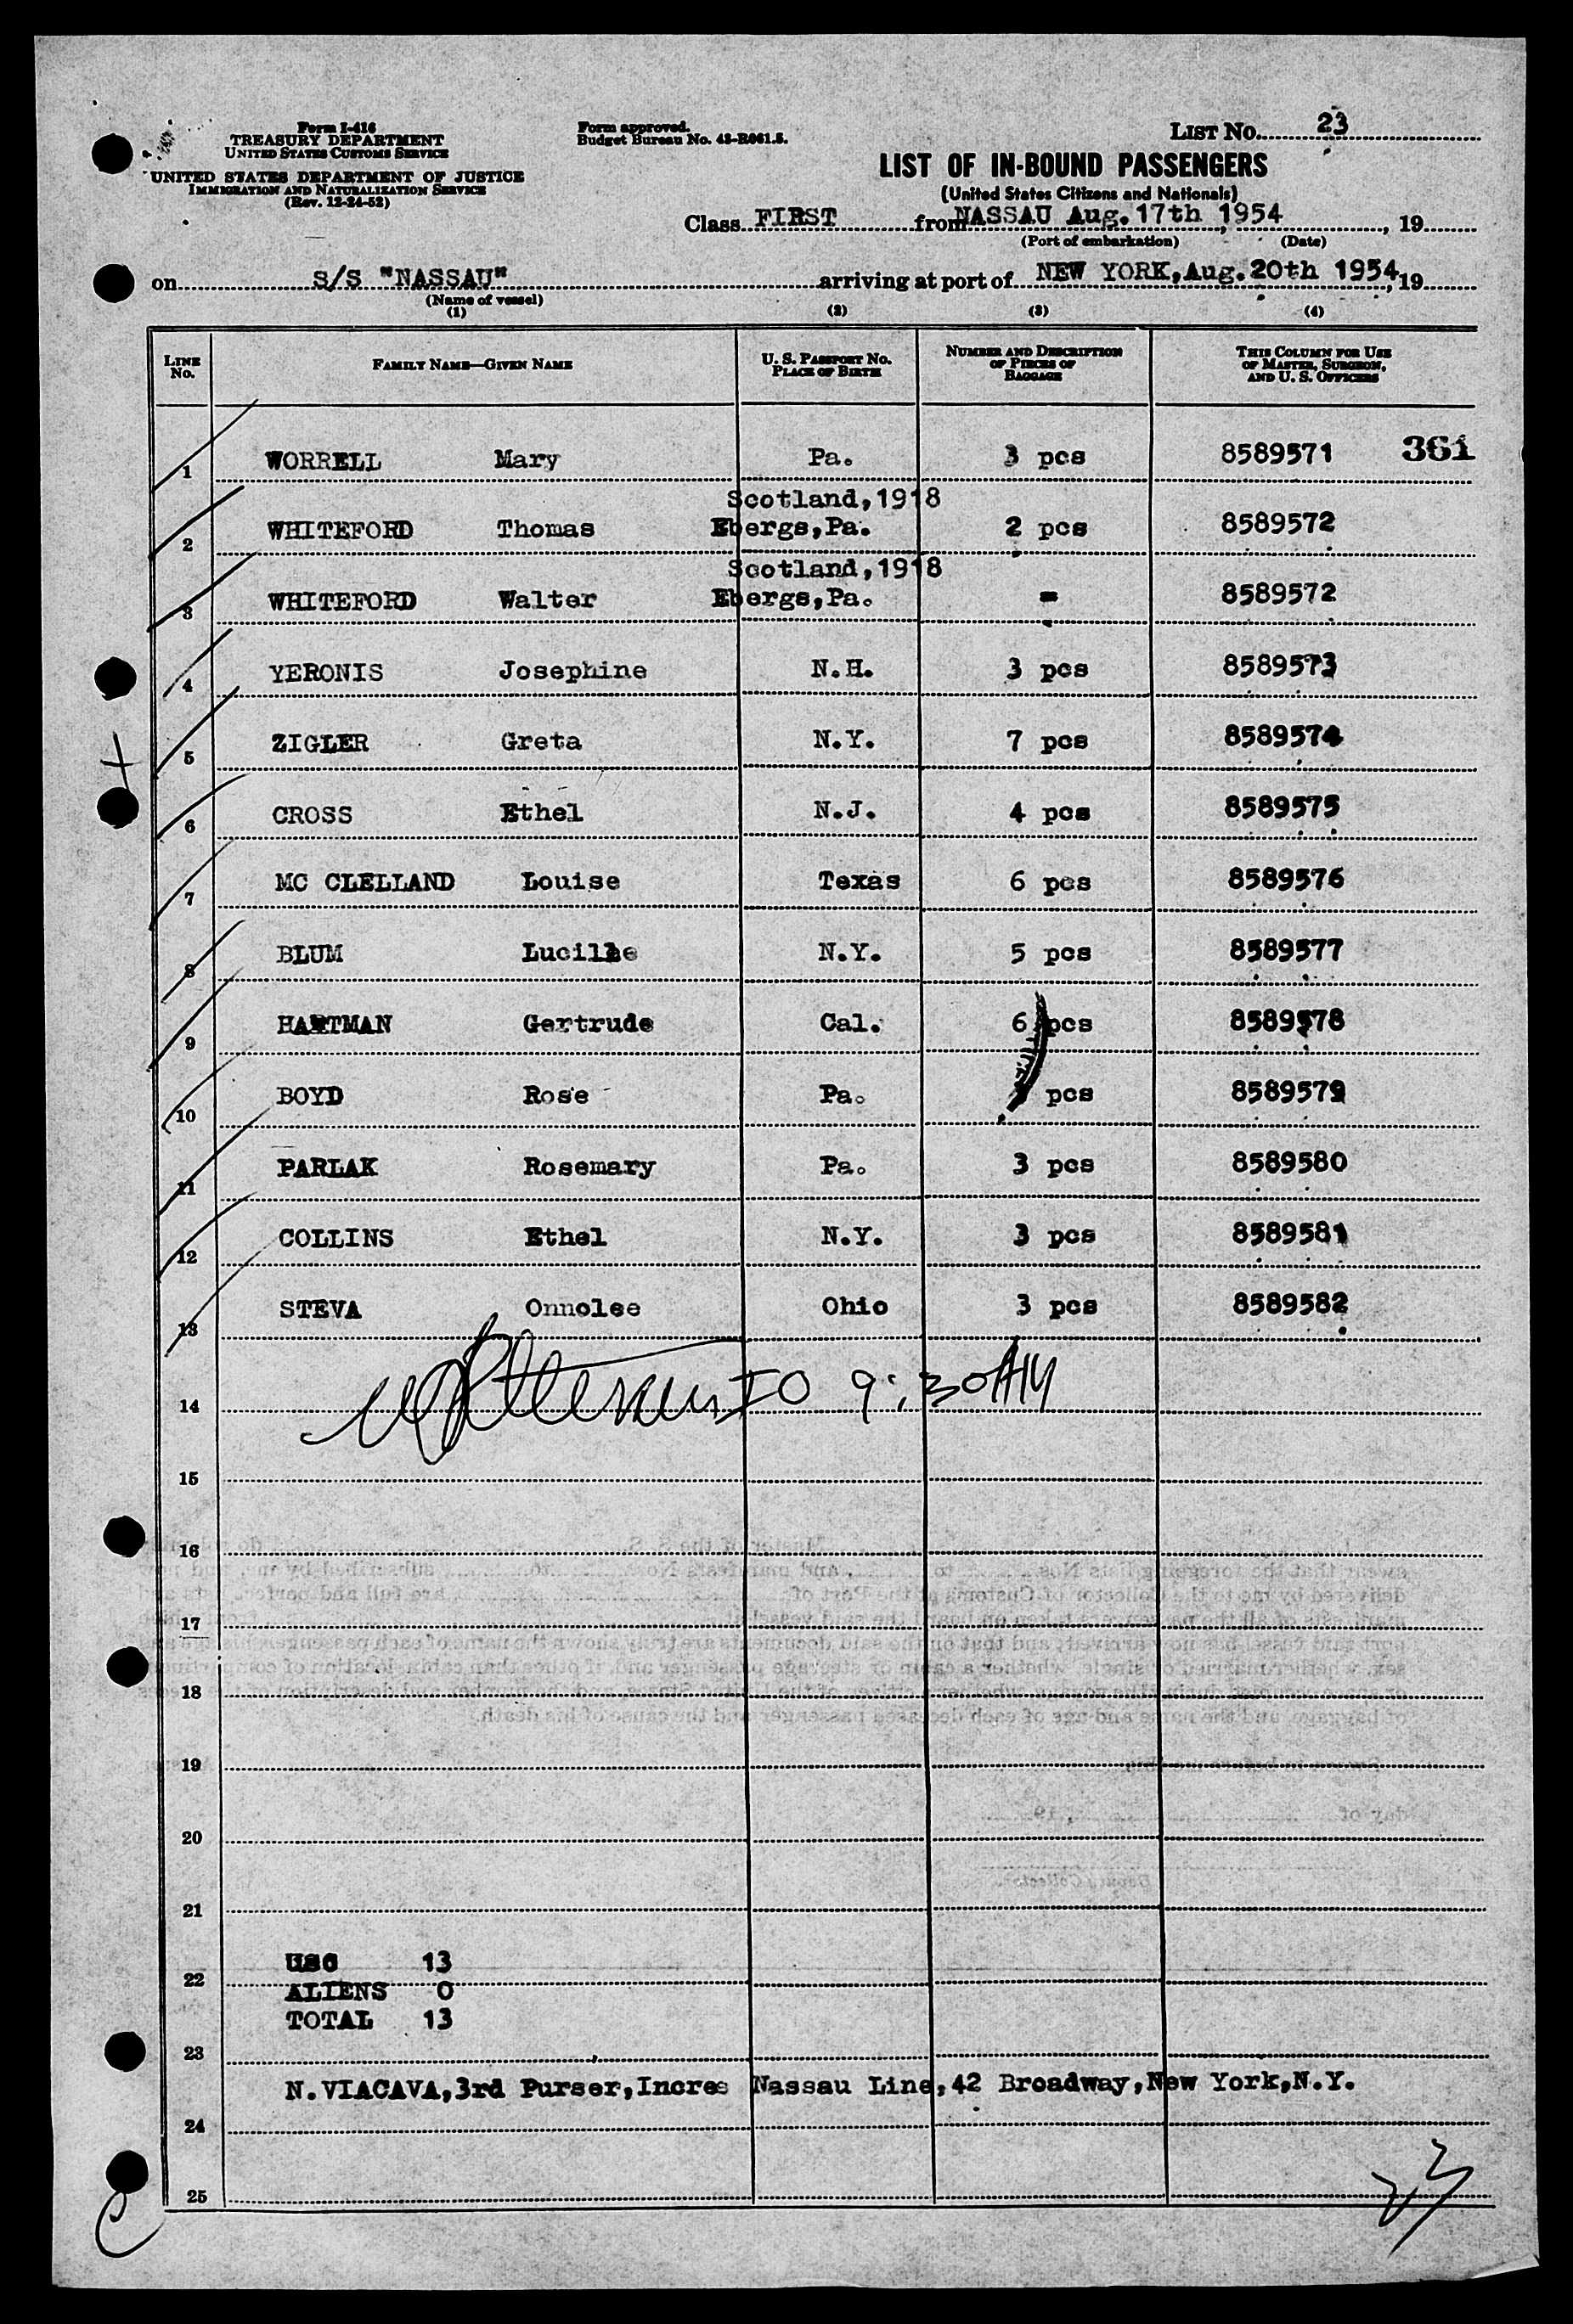 Form I-416
TREASURY DEPARTMENT
UNITED STATES CUSTOMS SERVICE
UNITED STATES DEPARTMENT OF JUSTICE
IMMIGRATION AND NATURALIZATION SERVICE
(Rev. 12-24-52)
Form approved.
Budget Bureau No. 43-R061.5.
LIST No. 23
LIST OF IN-BOUND PASSENGERS
(United States Citizens and Nationals)
Class FIRST from NASSAU Aug. 17th, 1954, 19
(Port of embarkation) (Date)
on S/S "NASSAU" arriving at port of NEW YORK, Aug. 20th 1954, 19
(Name of vessel)
(1) (2) (3) (4)
LINE No. FAMILY NAME—GIVEN NAME U. S. PASSPORT No. PLACE OF BIRTH NUMBER AND DESCRIPTION OF PIECES OF BAGGAGE THIS COLUMN FOR USE OF MASTER, SURGEON, AND U. S. OFFICERS
1 WORRELL Mary Pa. 3 pcs 8589571 361
Scotland,1918
2 WHITEFORD Thomas Ebergs,Pa. 2 pcs 8589572
Scotland,1918
3 WHITEFORD Walter Ebergs,Pa. - 8589572
4 YERONIS Josephine N.H. 3 pcs 8589573
5 ZIGLER Greta N.Y. 7 pcs 8589574
6 CROSS Ethel N.J. 4 pcs 8589575
7 MC CLELLAND Louise Texas 6 pcs 8589576
8 BLUM Lucille N.Y. 5 pcs 8589577
9 HARTMAN Gertrude Cal. 6 pcs 8589578
10 BOYD Rose Pa. pcs 8589579
11 PARLAK Rosemary Pa. 3 pcs 8589580
12 COLLINS Ethel N.Y. 3 pcs 8589581
13 STEVA Onnolee Ohio 3 pcs 8589582
14 IO 9:30 AM
15
16
17
18
19
20
21
USC 13
22
ALIENS 0
TOTAL 13
23
N.VIACAVA,3rd Purser,Incres Nassau Line,42 Broadway,New York,N.Y.
24
25